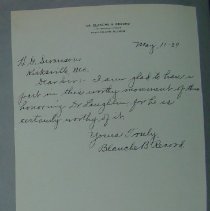 DR. BLANCHE B. RECORD
May 11-29
H. G. Swanson
Kirksville Mo.
Dear Sir:- I am glad to have a
part in this worthy movement of
honoring Dr Laughlin for he is
certainly worthy of it.
Yours Truly,
Blanche B Record